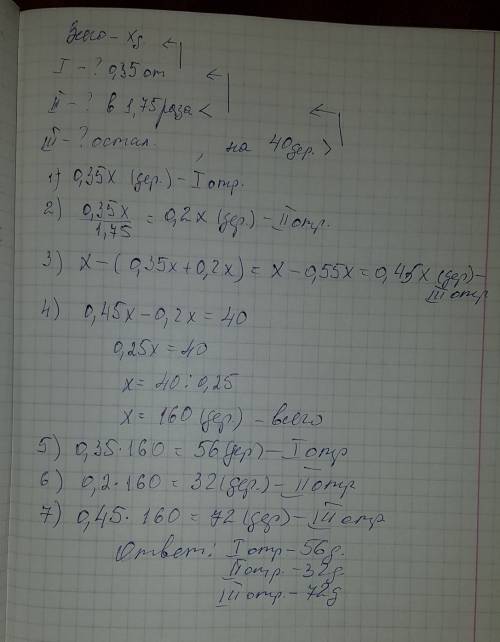 Всего - x
I - ? 0,35 от
II - ? в 1,75 раза <
III - ? остал. , на 40 дер. >
1) 0,35x (дер.) - I отр.
2) 0,35x / 1,75 = 0,2x (дер.) - II отр.
3) x - (0,35x + 0,2x) = x - 0,55x = 0,45x (дер) -
III отр
4) 0,45x - 0,2x = 40
0,25x = 40
x = 40 : 0,25
x = 160 (дер.) - всего
5) 0,35 · 160 = 56 (дер) - I отр
6) 0,2 · 160 = 32 (дер.) - II отр
7) 0,45 · 160 = 72 (дер) - III отр
Ответ: I отр - 56 д.
II отр. - 32 д.
III отр. - 72 д